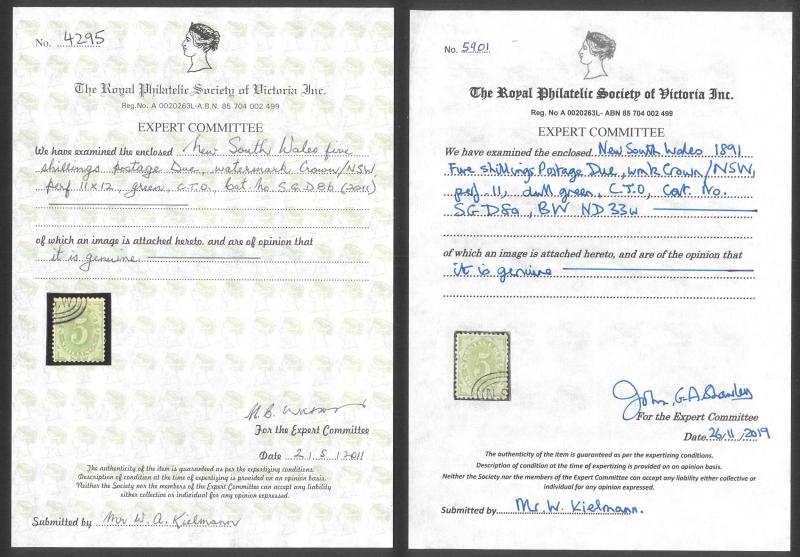 No. 4295
The Royal Philatelic Society of Victoria Inc.
Reg.No. A 0020263L-A.B.N. 85 704 002 499
EXPERT COMMITTEE
We have examined the enclosed New South Wales five
shillings postage Due, watermark Crown/NSW
perf 11x12, green, C.T.O, Cat. no S.G. D8b (2011)
of which an image is attached hereto. and are of opinion that
it is genuine
5
For the Expert Committee
Date 2/5/2011
The authenticity of the item is guaranteed as per the expertizing conditions.
Description of condition at the time of expertizing is provided on an opinion basis.
Neither the Society nor the members of the Expert Committee can accept any liability
either collective or individual for any opinion expressed.
Submitted by Mr W. A. Kielmann
No. 5901
The Royal Philatelic Society of Victoria Inc.
Reg. No A 0020263L- ABN 85 704 002 499
EXPERT COMMITTEE
We have examined the enclosed New South Wales 1891
Five shillings Postage Due, wmk Crown/NSW,
perf 11, dull green, C.T.O, Cat. No.
SG D8a, BW ND33w
of which an image is attached hereto, and are of the opinion that
it is genuine
5
John. G.A. Shawley
For the Expert Committee
Date 26/11/2019
The authenticity of the item is guaranteed as per the expertizing conditions.
Description of condition at the time of expertizing is provided on an opinion basis.
Neither the Society nor the members of the Expert Committee can accept any liability either collective or
individual for any opinion expressed.
Submitted by Mr. W. Kielmann.